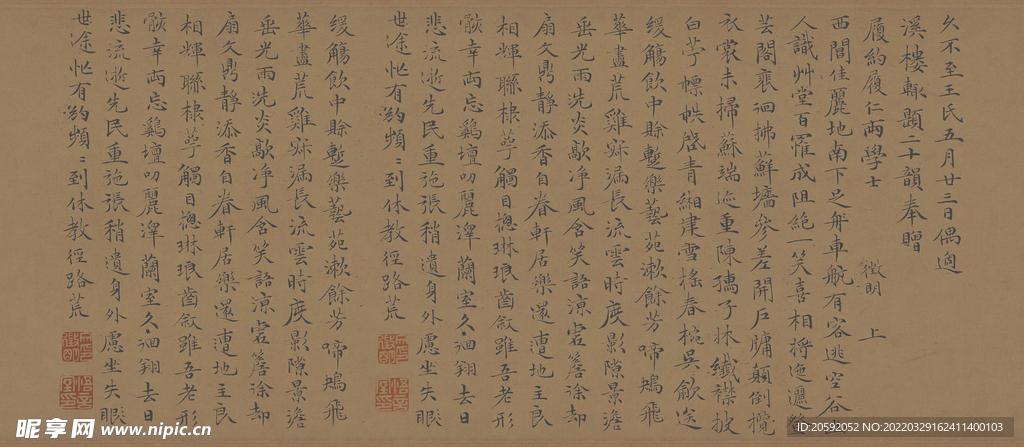 久不至王氏五月廿三日偶過
溪樓輙題二十韻奉贈
履約履仁兩學士
徵明 上
西閶佳麗地南下足舟車航有容逃空谷
人識草堂百罹成阻絕一笑喜相將迤邐
芸閣裹洄拂蘚墻參差開户牖顛倒攬
衣裳未掃蘇端迹重陳孺子牀纖襟披
白苧幖帙啓青緗津雪搖春椀吳歈送
緩觴飲中賖塹樂藝苑漱餘芳啼鴂飛
華盡荒雞煢漏長流雲時度影隙景澹
垂光雨洗炎歊淨風含笑語涼宕簷涂却
扇久鼎靜添香自眷軒居樂還遭地主良
相輝聯棣萼觸目總琳琅齒叙雖吾老形
骸幸兩忘鷄壇叨麗澤蘭室久洄翔去日
悲流逝先民重弛張稍遺身外慮坐失眼
世途忙有約頻頻到休教徑路荒
緩觴飲中賖塹樂藝苑漱餘芳啼鴂飛
華盡荒雞煢漏長流雲時度影隙景澹
垂光雨洗炎歊淨風含笑語涼宕簷涂却
扇久鼎靜添香自眷軒居樂還遭地主良
相輝聯棣萼觸目總琳琅齒叙雖吾老形
骸幸兩忘鷄壇叨麗澤蘭室久洄翔去日
悲流逝先民重弛張稍遺身外慮坐失眼
世途忙有約頻頻到休教徑路荒
昵享网 www.nipic.cn
ID:20592052 NO:20220329162411400103